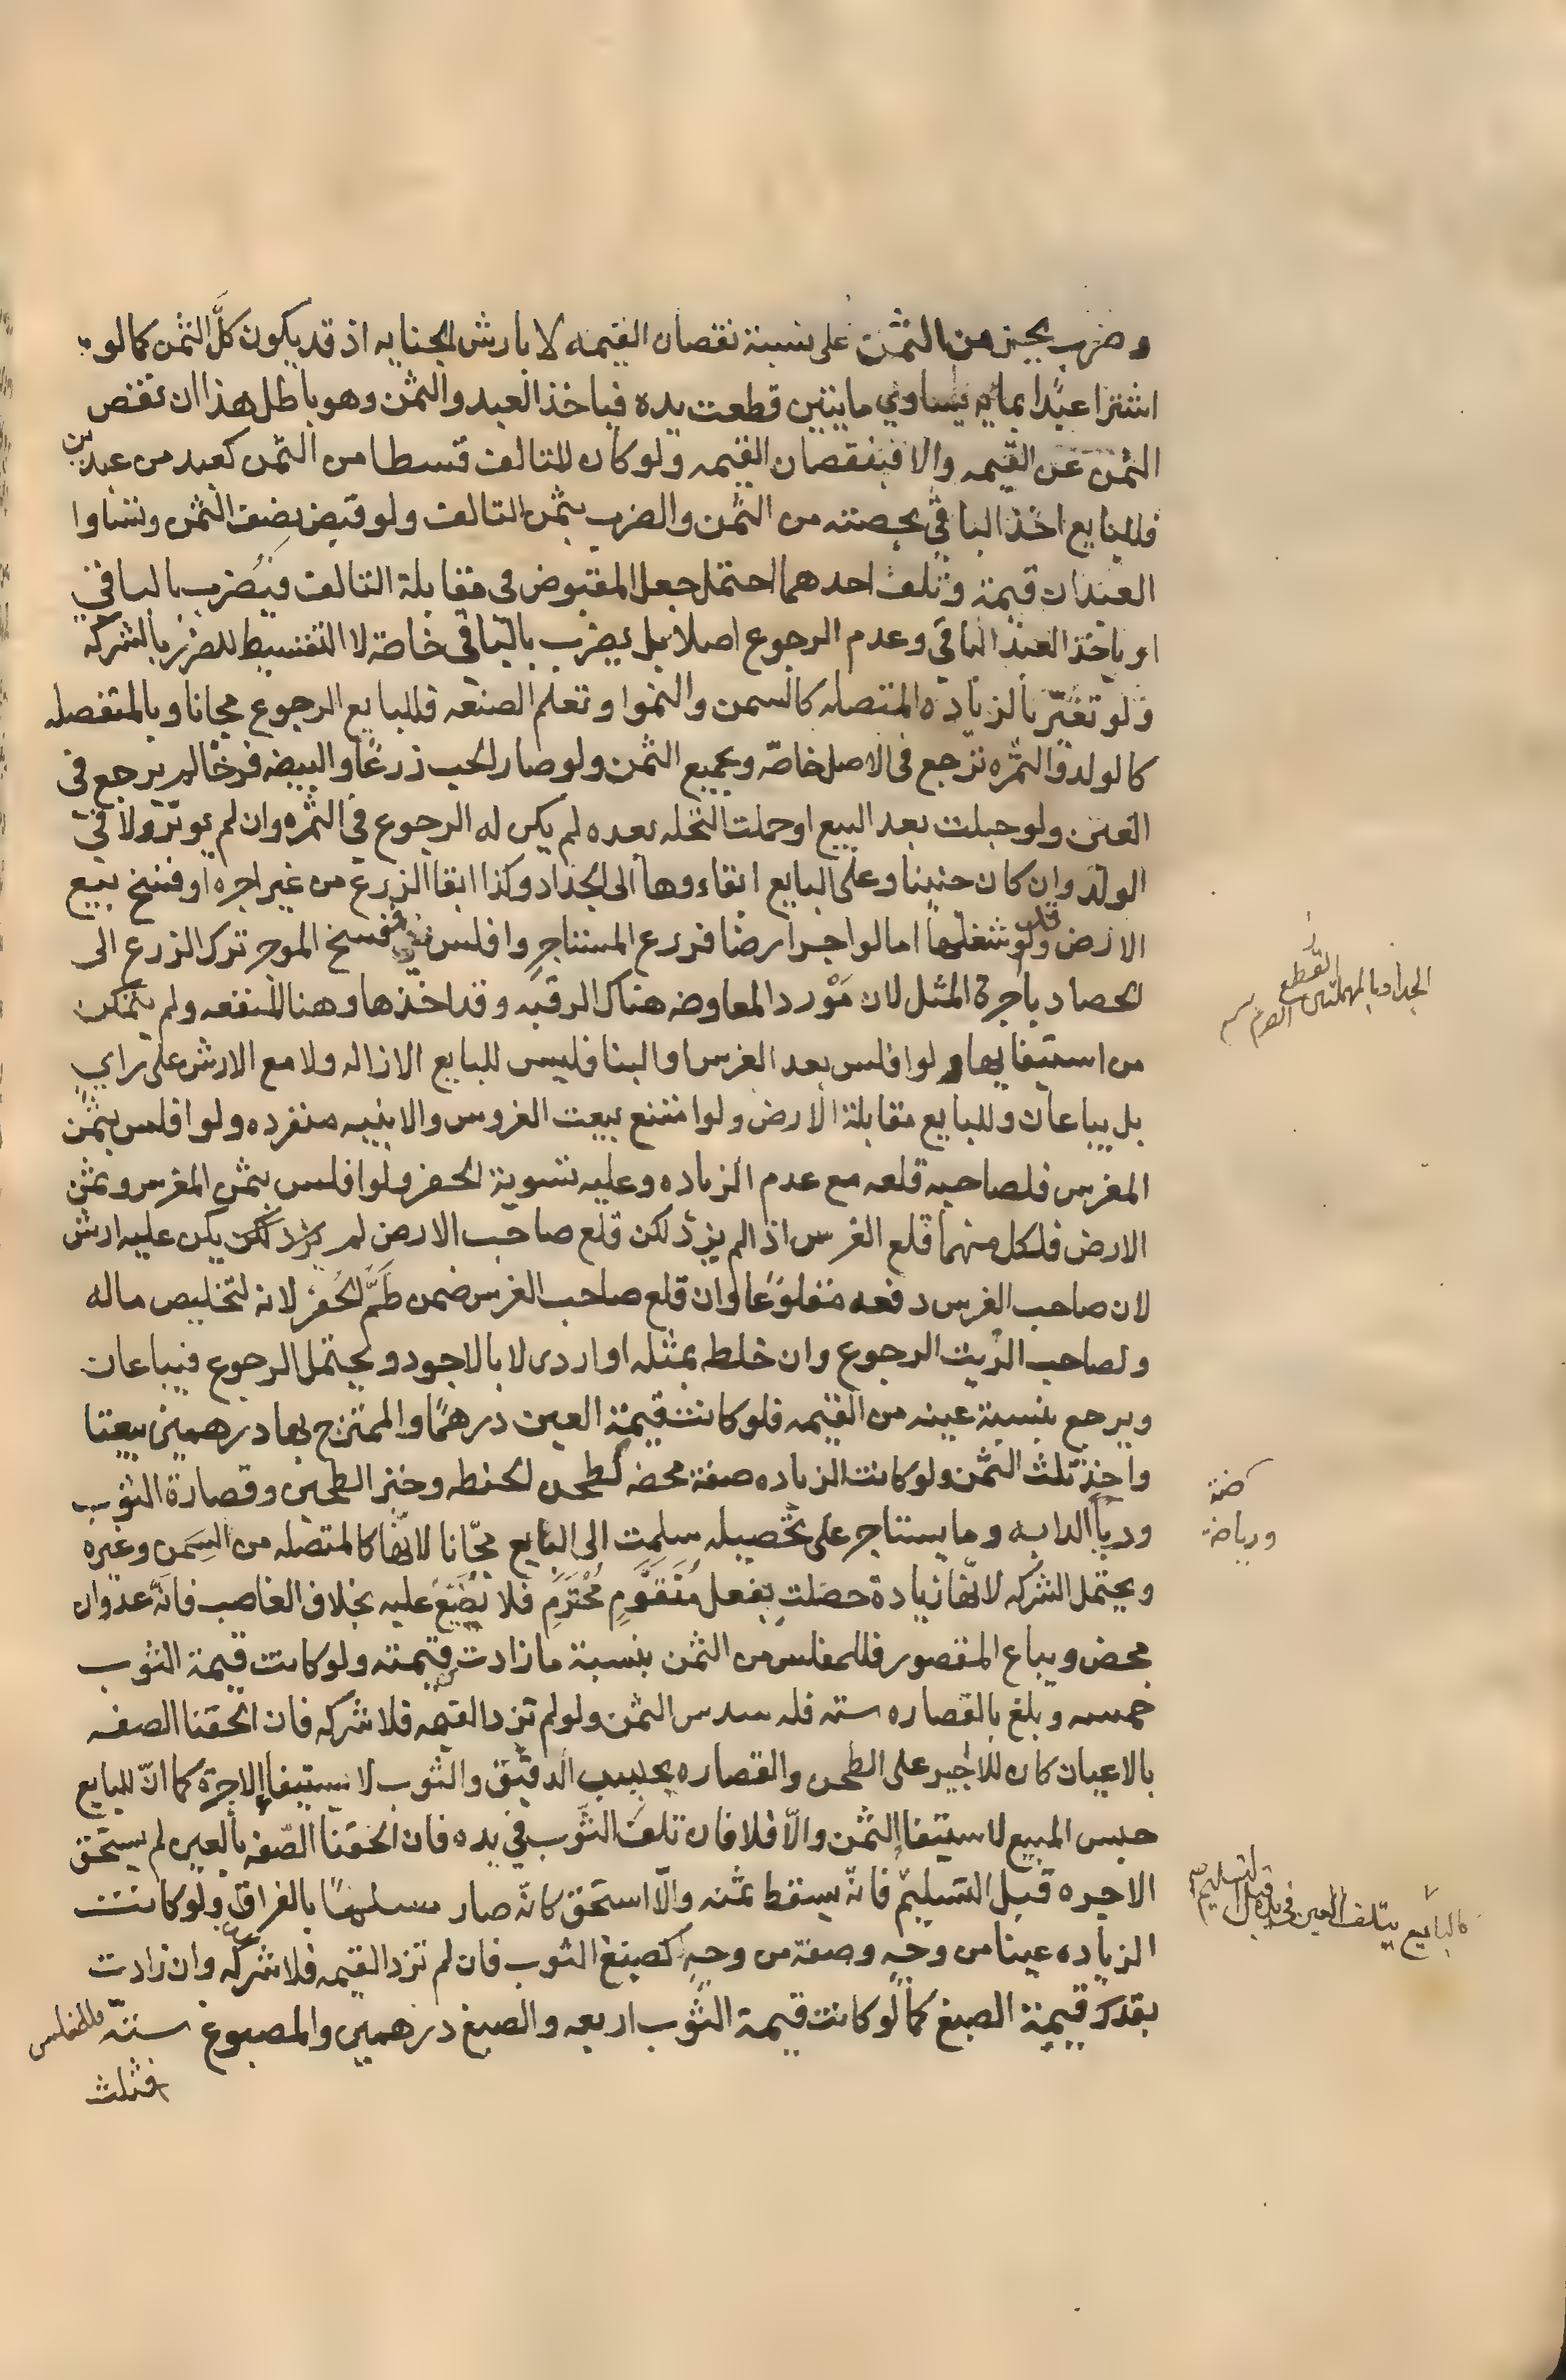 وضرب بجزء من الثمن على نسبة نقصان القيمه لا بارش الجنايه اذ قد يكون كلَّ الثمن كما لو
اشترا عبدًا بمائه يساوي مايتين قطعت يده فياخذ العبد والثمن وهو باطل هذا ان نقص
الثمن عن القيمه والا فبنقصان القيمه ولو كان للتالف قسطا من الثمن كعبد من عبدين
فللبايع اخذ الباقي بحصته من الثمن والضرب بثمن التالف ولو قبض نصف الثمن وتساوا
العبدان قيمة وتلف احدهما احتمل جعل المقبوض فى مقابلة التالف فيضرب بالباقي
او ياخذ العبد الباقي وعدم الرجوع اصلا بل يضرب بالباقي خاصة لا التقسيط للضرر بالشركه
ولو تغيّر بالزياده المتصله كالسمن والنموا وتعلم الصنعه فللبايع الرجوع مجانا وبالمنفصله
كالولد والثمره نرجع فى الاصل خاصّه وبجميع الثمن ولو صار الحب زرعًا والبيضه فرخًا لم يرجع فى
العين ولو حبلت بعد البيع او حملت النخله بعده لم يكن له الرجوع في الثمره وان لم يوبّر ولا في
الولد وان كان جنينا وعلى البايع ابقاءوها الى الجداد وكذا ابقا الزرع من غير اجره او فسخ بيع
الارض قبله ولو شغلها اما لو اجر ارضا فزرع المستاجر وافلس ففسخ الموجر ترك الزرع الى
الحصاد باجرة المثل لان مَوْرد المعاوضه هناك الرقبه وقد اخذها وهنا المنفعه ولم يتمكن
من استيفايها ولو افلس بعد الغرس او البنا فليس للبايع الازاله ولا مع الارش على راي
بل يباعان وللبايع مقابلة الارض ولو امتنع بيعت الغروس والابنيه منفرده ولو افلس بثمن
المغرس فلصاحبه قلعه مع عدم الزياده وعليه تسوية الحفر ولو افلس بثمن المغرس وبثمن
الارض فلكل منهما قلع الغرس اذا لم يزد لكن قلع صاحب الارض لم يكن عليه ارش
لان صاحب الغرس دفعه مقلوعًا وان قلع صاحب الغرس ضمن طَمَّ الحُفر لانه لتخليص ماله
ولصاحب الزيت الرجوع وان خلط بمثله او اردى لا بالاجود ويحتمل الرجوع فيباعان
ويرجع بنسبة عينه من القيمه فلو كانت قيمة العين درهمًا والممتزج بها درهمين بيعتا
واخذ ثلث الثمن ولو كانت الزياده صفة محضه كطحن الحنطه وخبز الطحين وقصارة الثوب
ورياضة الدابه وما يستاجر على تحصيله سلمت الى البايع مجّانا لانّها كالمتصله من السِمَن وغيره
ويحتمل الشركه لانّها زيادة حصلت بفعل مُتَقَوَّمٍ مُحْتَرَمٍ فلا يضيَّع عليه بخلاف الغاصب فانّه عدوان
محض ويباع المقصور فللمفلس من الثمن بنسبة ما زادت قيمته ولو كانت قيمة الثوب
خمسه وبلغ بالقصاره سته فله سدس الثمن ولو لم تزد القيمه فلا شركه فان الحقنا الصفه
بالاعيان كان للاجير على الطحن والقصاره حبس الدقيق والثوب لاستيفا الاجرة كما انّ للبايع
حبس المبيع لاستيفا الثمن والّا فلا فان تلف الثوب في يده فان الحقنا الصّفه بالعين لم يستحق
الاجره قبل التسليم فانّه يسقط ثمنه والّا استحق كانّه صار مسلمًا بالفراق ولو كانت
الزياده عينا من وجهٍ وصفة من وجهٍ كصبغ الثوب فان لم تزد القيمه فلا شركه وان زادت
بقدر قيمة الصبغ كما لو كانت قيمة الثوب اربعه والصبغ درهمين والمصبوغ ستّه فللمفلس
فثلث
الجداد بالمهملتين القطع
الصرم
ضة
ورياضة
كالبايع يتلف العين في يده قبل التسليم